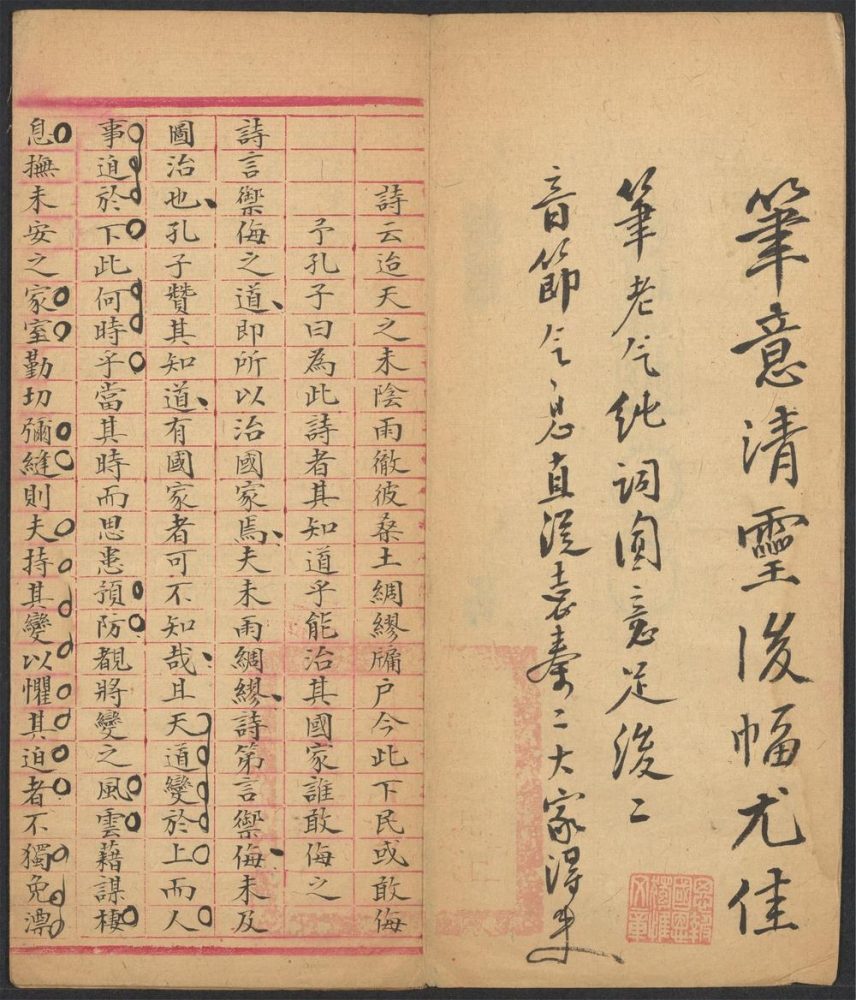 筆意清靈後幅尤佳
筆老气純詞圓意足後二
音節气息直從二大家得來
詩云迨天之未陰雨徹彼桑土綢繆牖户今此下民或敢侮
予孔子曰為此詩者其知道乎能治其國家誰敢侮之
詩言禦侮之道、即所以治國家焉、夫未雨綢繆、詩第言禦侮、未及
圖治也、孔子贊其知道、有國家者可不知哉、且天道變於上而人
事迫於下此何時乎當其時而思患預防覩將變之風雲藉謀棲
息撫未安之家室勤切彌縫則夫持其變以懼其迫者不獨免漂